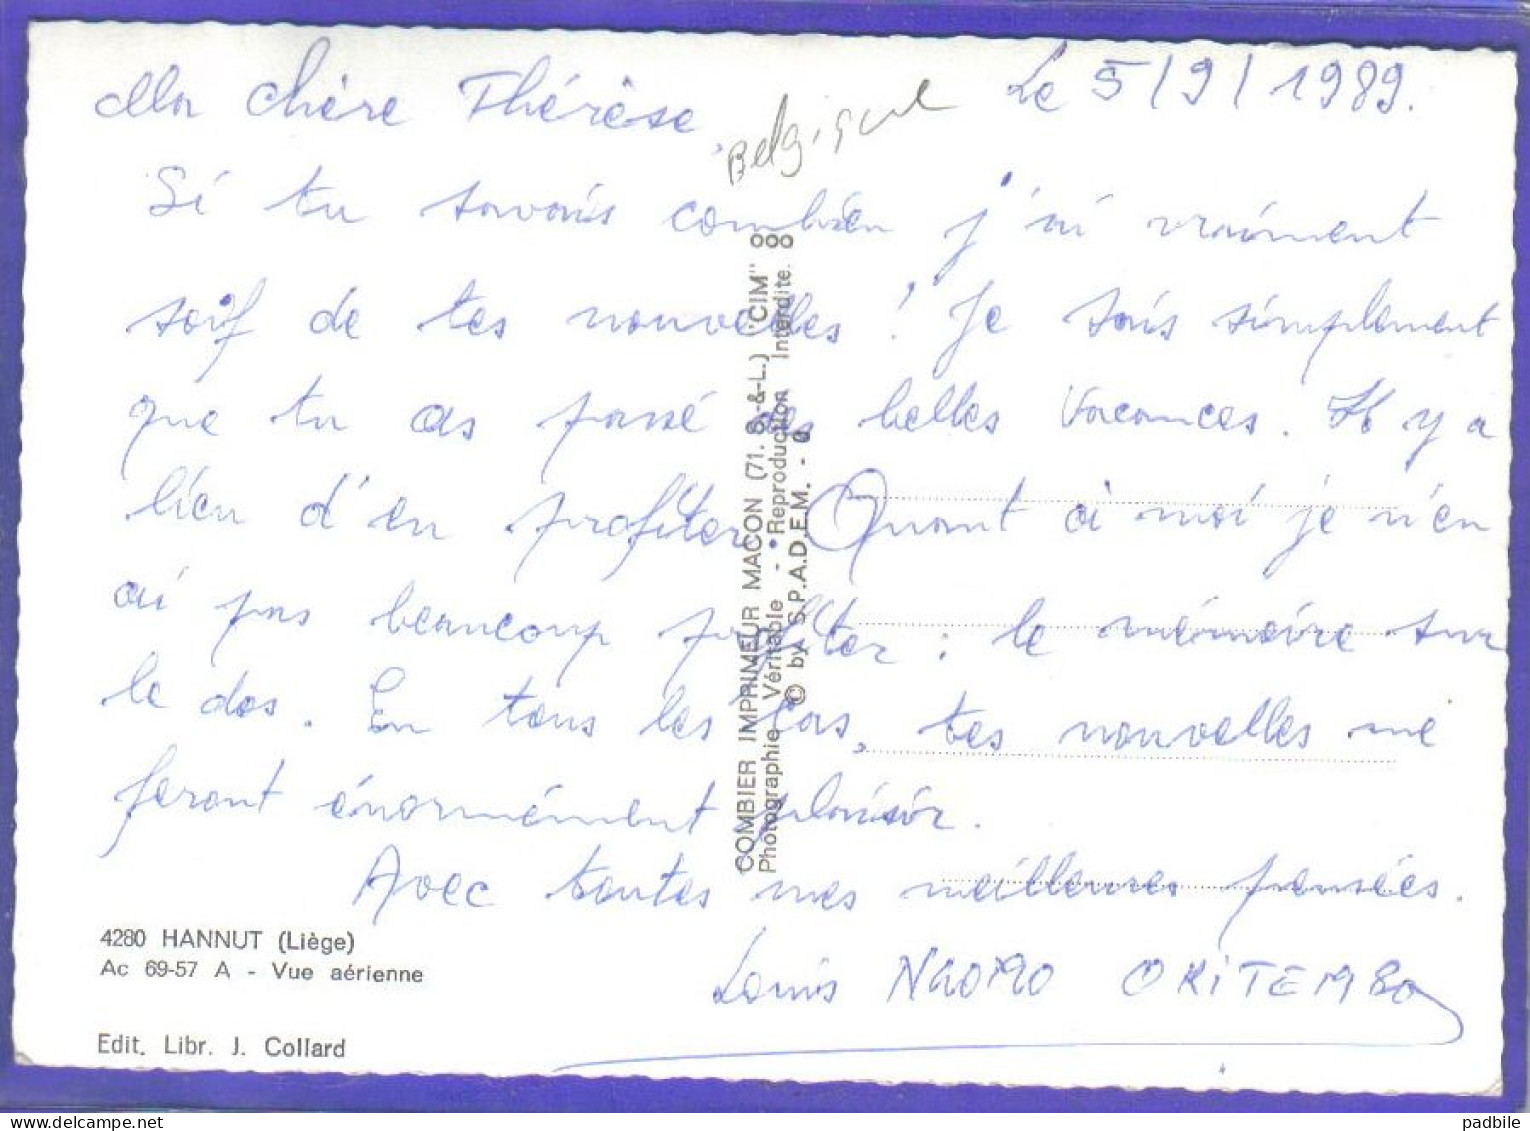 Ma chère Thérèse,
Belgique
Le 5/9/1989.
Si tu savais combien j'ai vraiment
soif de tes nouvelles ! Je sais simplement
que tu as passé des belles vacances. Il y a
lieu d'en profiter. Quant à moi je n'en
ai pas beaucoup profiter : le mémoire sur
le dos. En tous les cas, tes nouvelles me
feront énormément plaisir.
Avec toutes mes meilleures pensées.
Louis OKITEMBO
COMBIER IMPRIMEUR MACON (71. S.-&-L.) "CIM"
Photographie Véritable - • Reproduction Interdite.
© by S.P.A.D.E.M. -
4280 HANNUT (Liège)
Ac 69-57 A - Vue aérienne
Edit. Libr. J. Collard
padbile